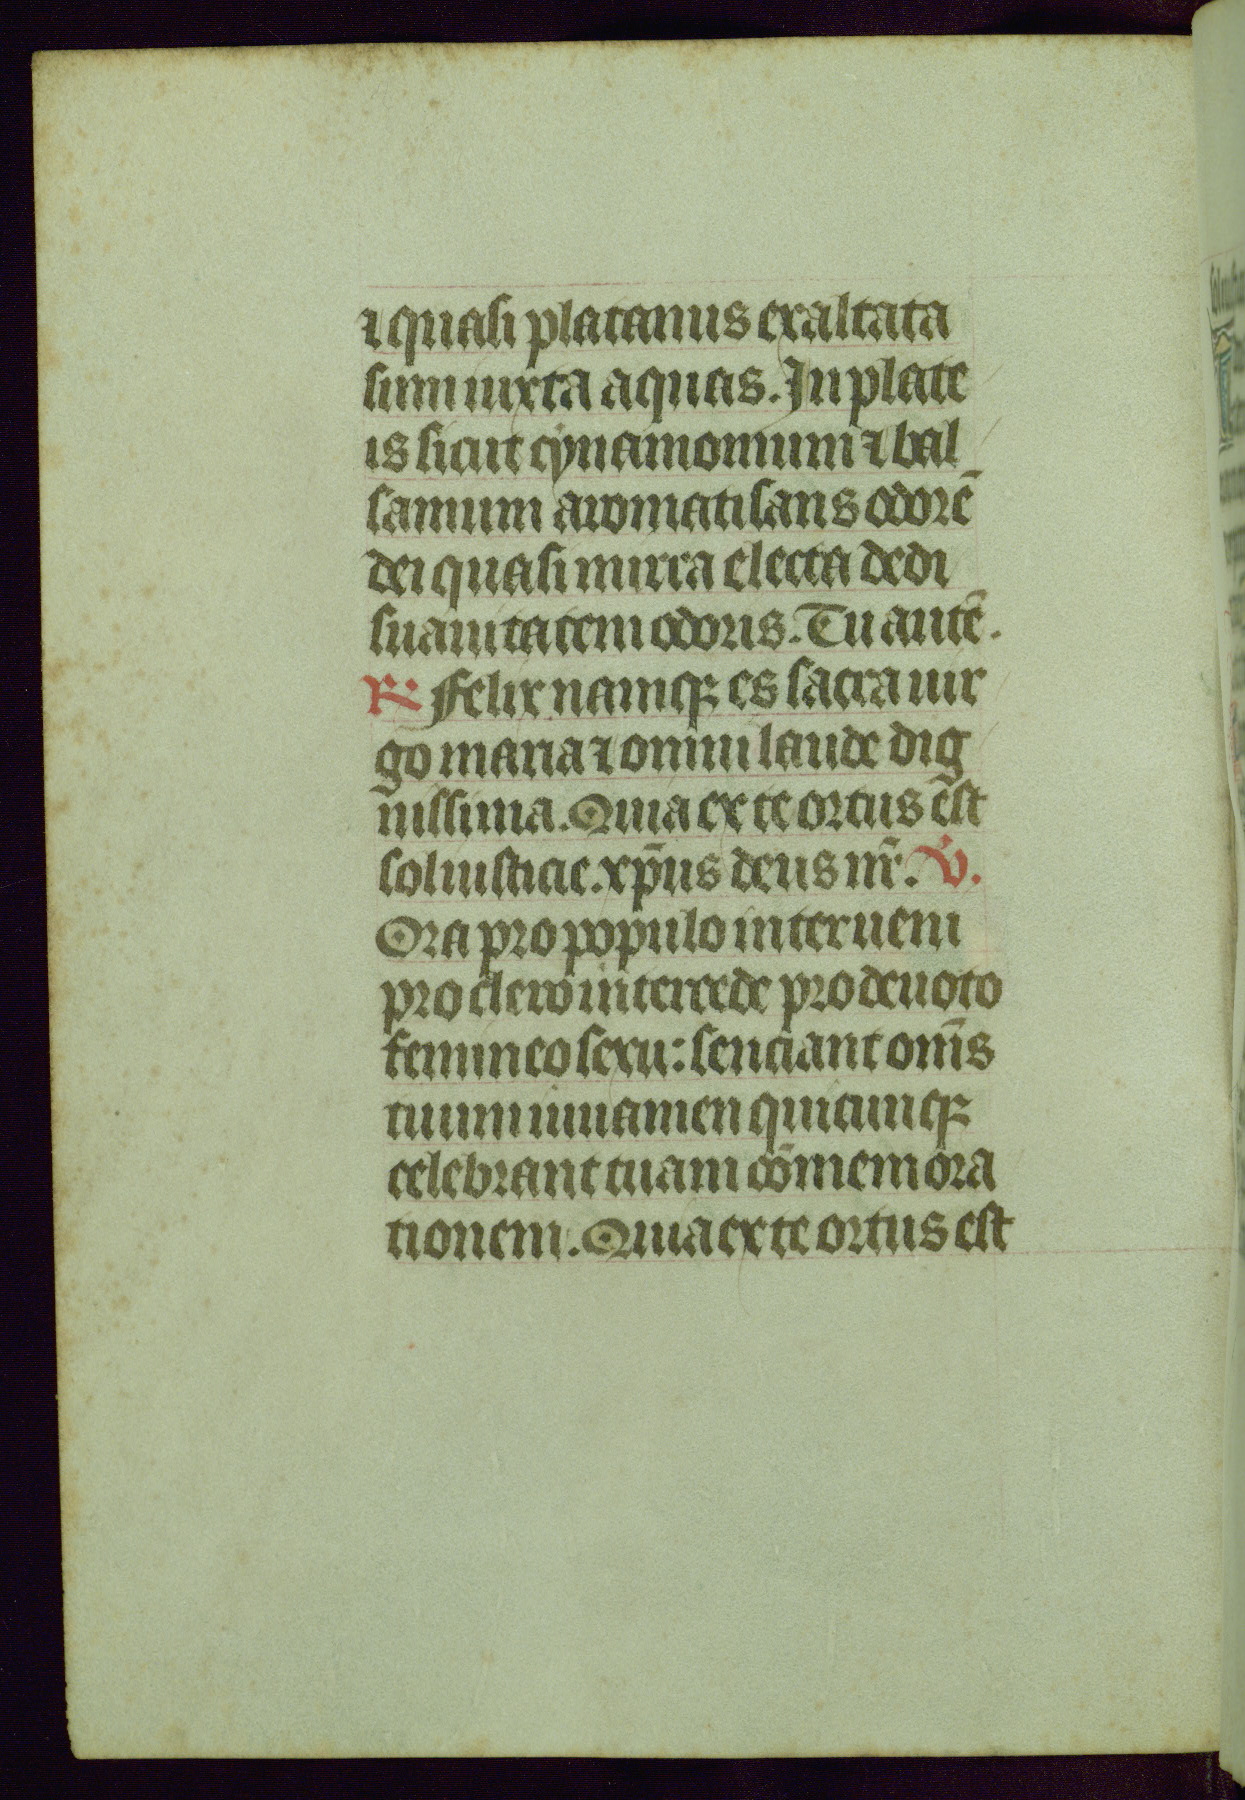 ⁊ quasi platanus exaltata
sum iuxta aquas. In plate
is sicut cynamomum ⁊ bal
samum aromatisans odorē
dei quasi mirra electa dedi
suauitatem odoris. Tu autē.
℟ Felix namqꝫ es sacra uir
go maria ⁊ omni laude dig
nissima. Quia ex te ortus est
sol iusticie. xp̄us deus nr̄. ℣.
Ora pro populo interueni
pro clero intercede pro deuoto
femineo sexu: senciant om̄s
tuum iuuamen quicunqꝫ
celebrant tuam cōmemora
tionem. Quia ex te ortus est